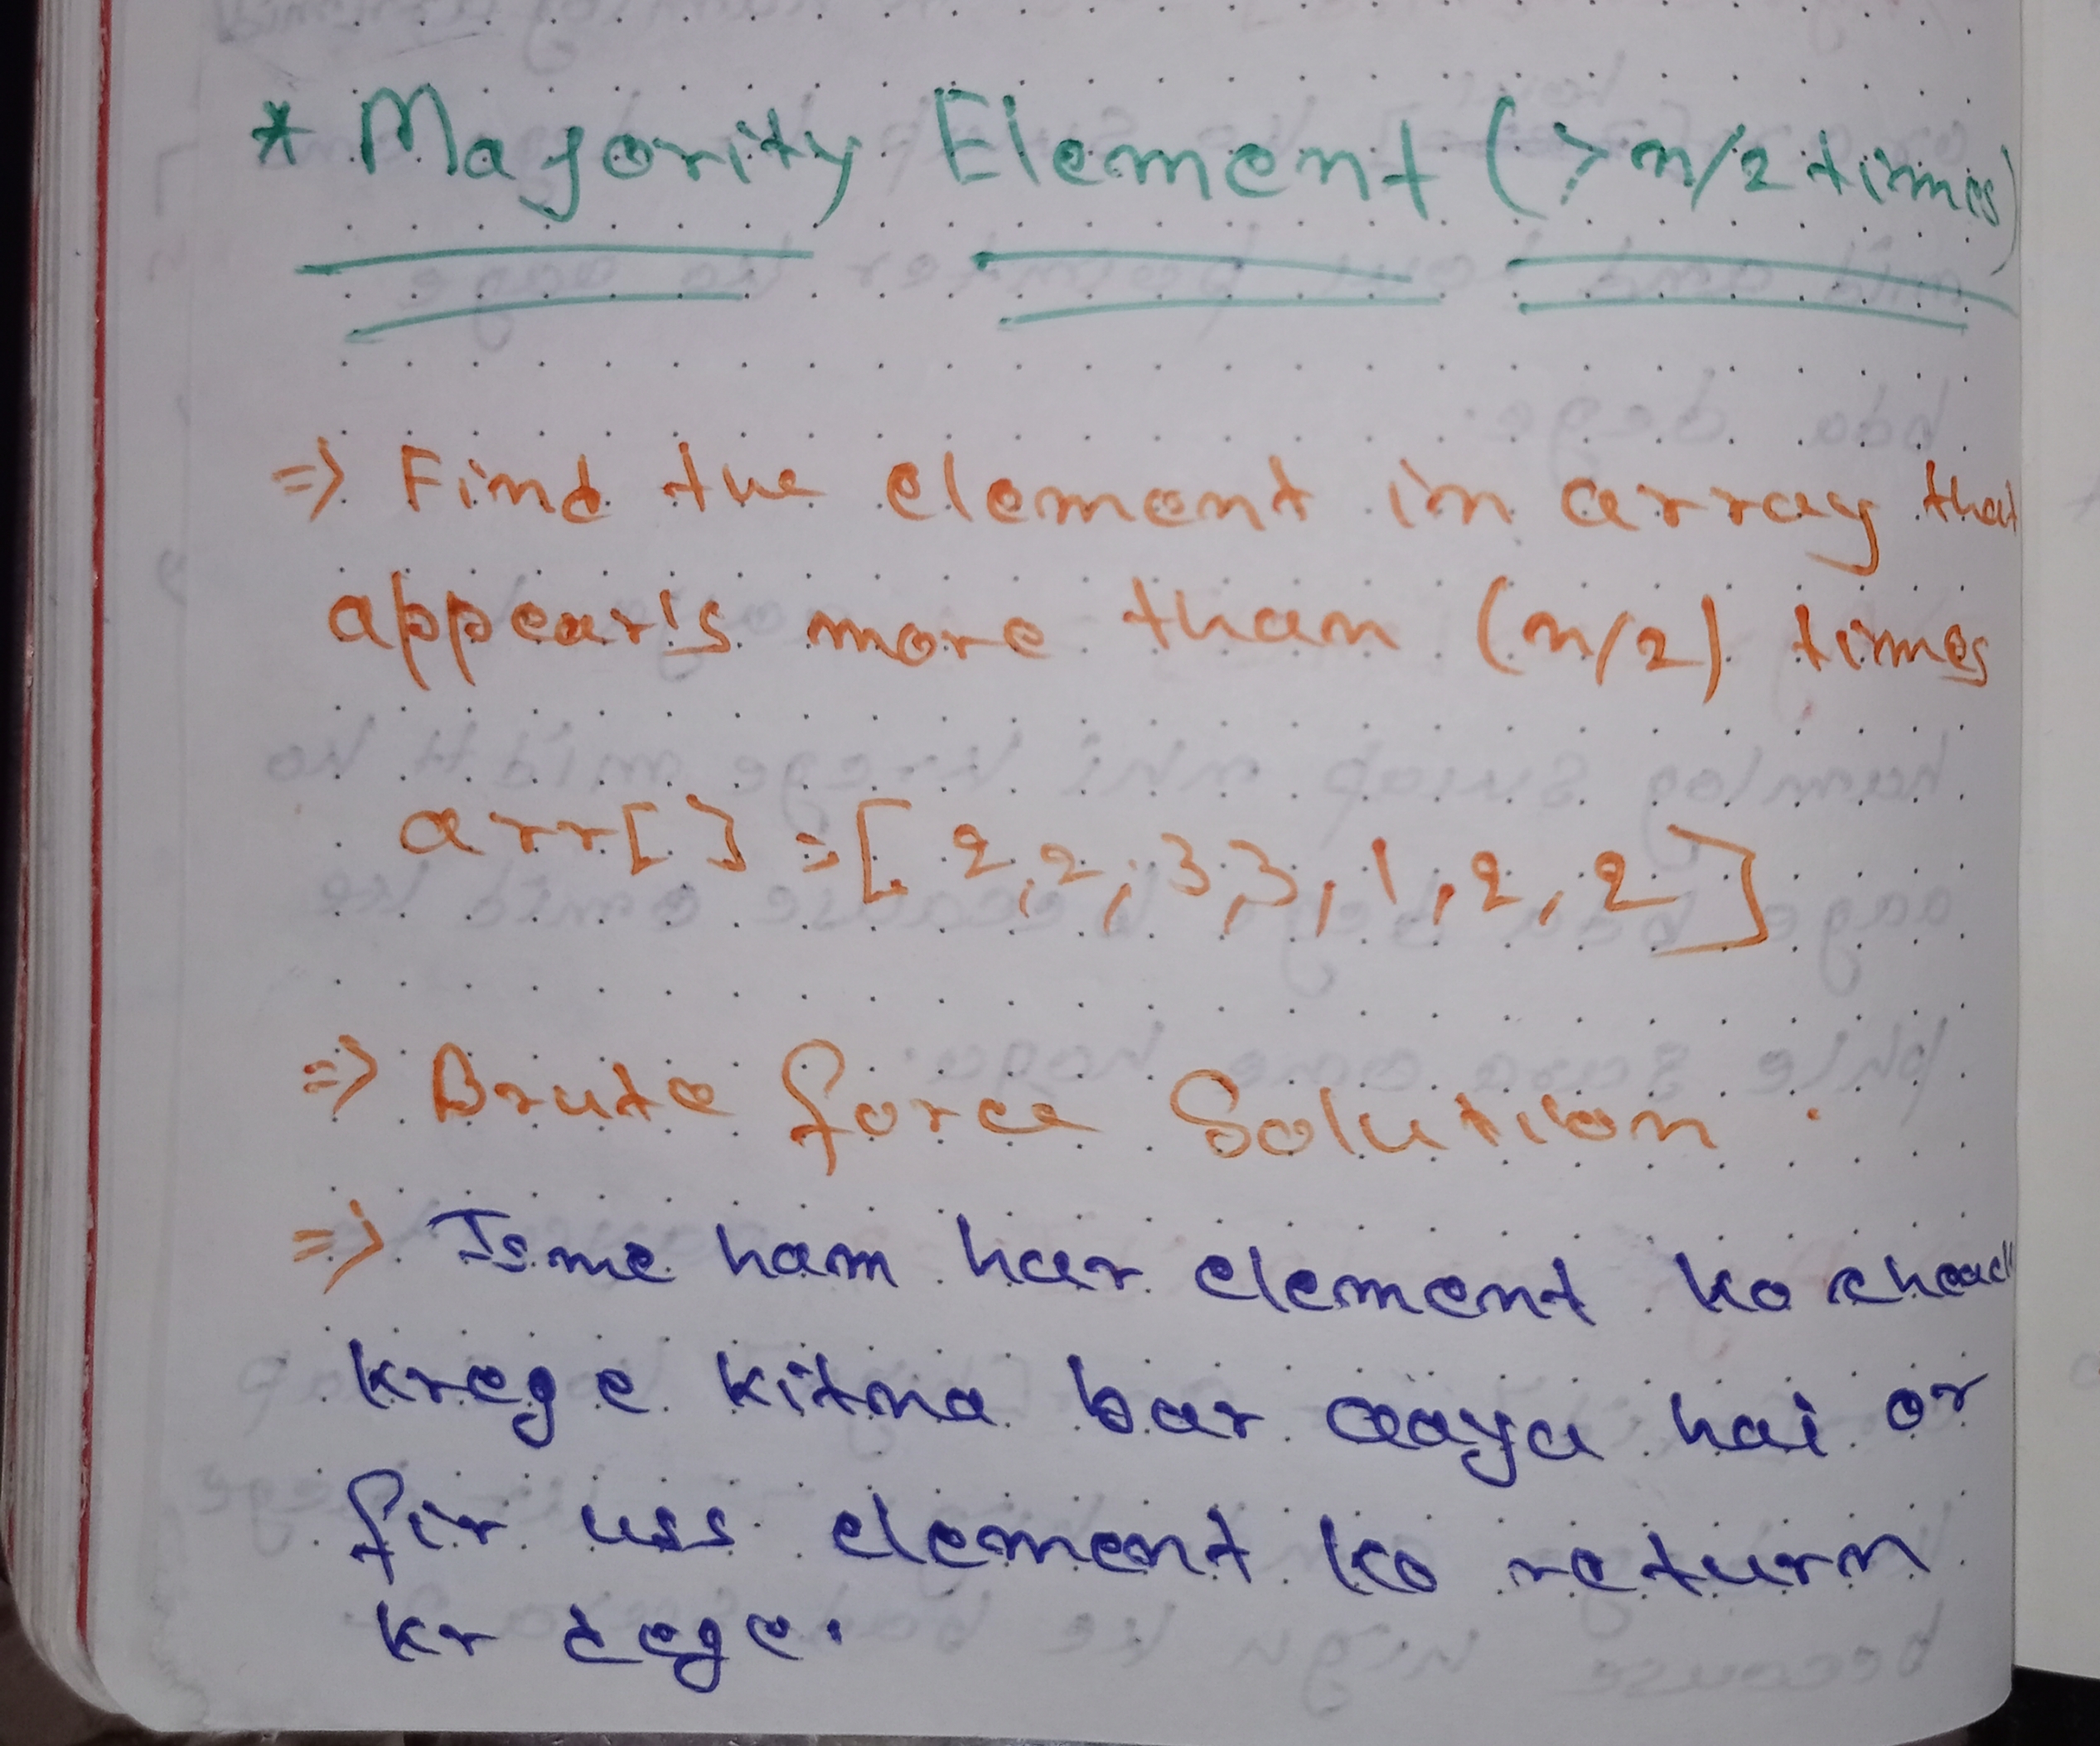 * Majority Element (> n/2 times)
=> Find the element in array that
appears more than (n/2) times
arr[] = [2,2,3,3,1,2,2]
=> Brute force Solution
=> Isme ham har element ko cheack
krege kitna bar aaya hai or
fir uss element ko return
kr dege.